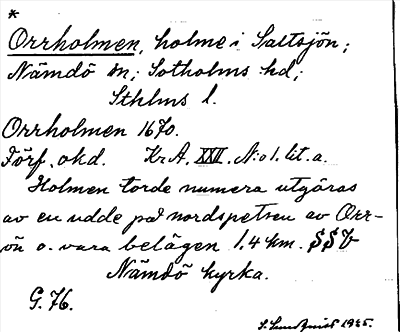 *
Orrholmen, holme i Saltsjön;
Nämdö sn; Sotholms hd;
Sthlms l.
Orrholmen 1670.
Förf. okd. Kr A. XXII. N:o 1. lit. a.
Holmen torde numera utgöras
av en udde på nordspetsen av Orr-
ön o. vara belägen 1,4 km. SSV
Nämdö kyrka.
G. 76.
S. Lundqvist 1925.